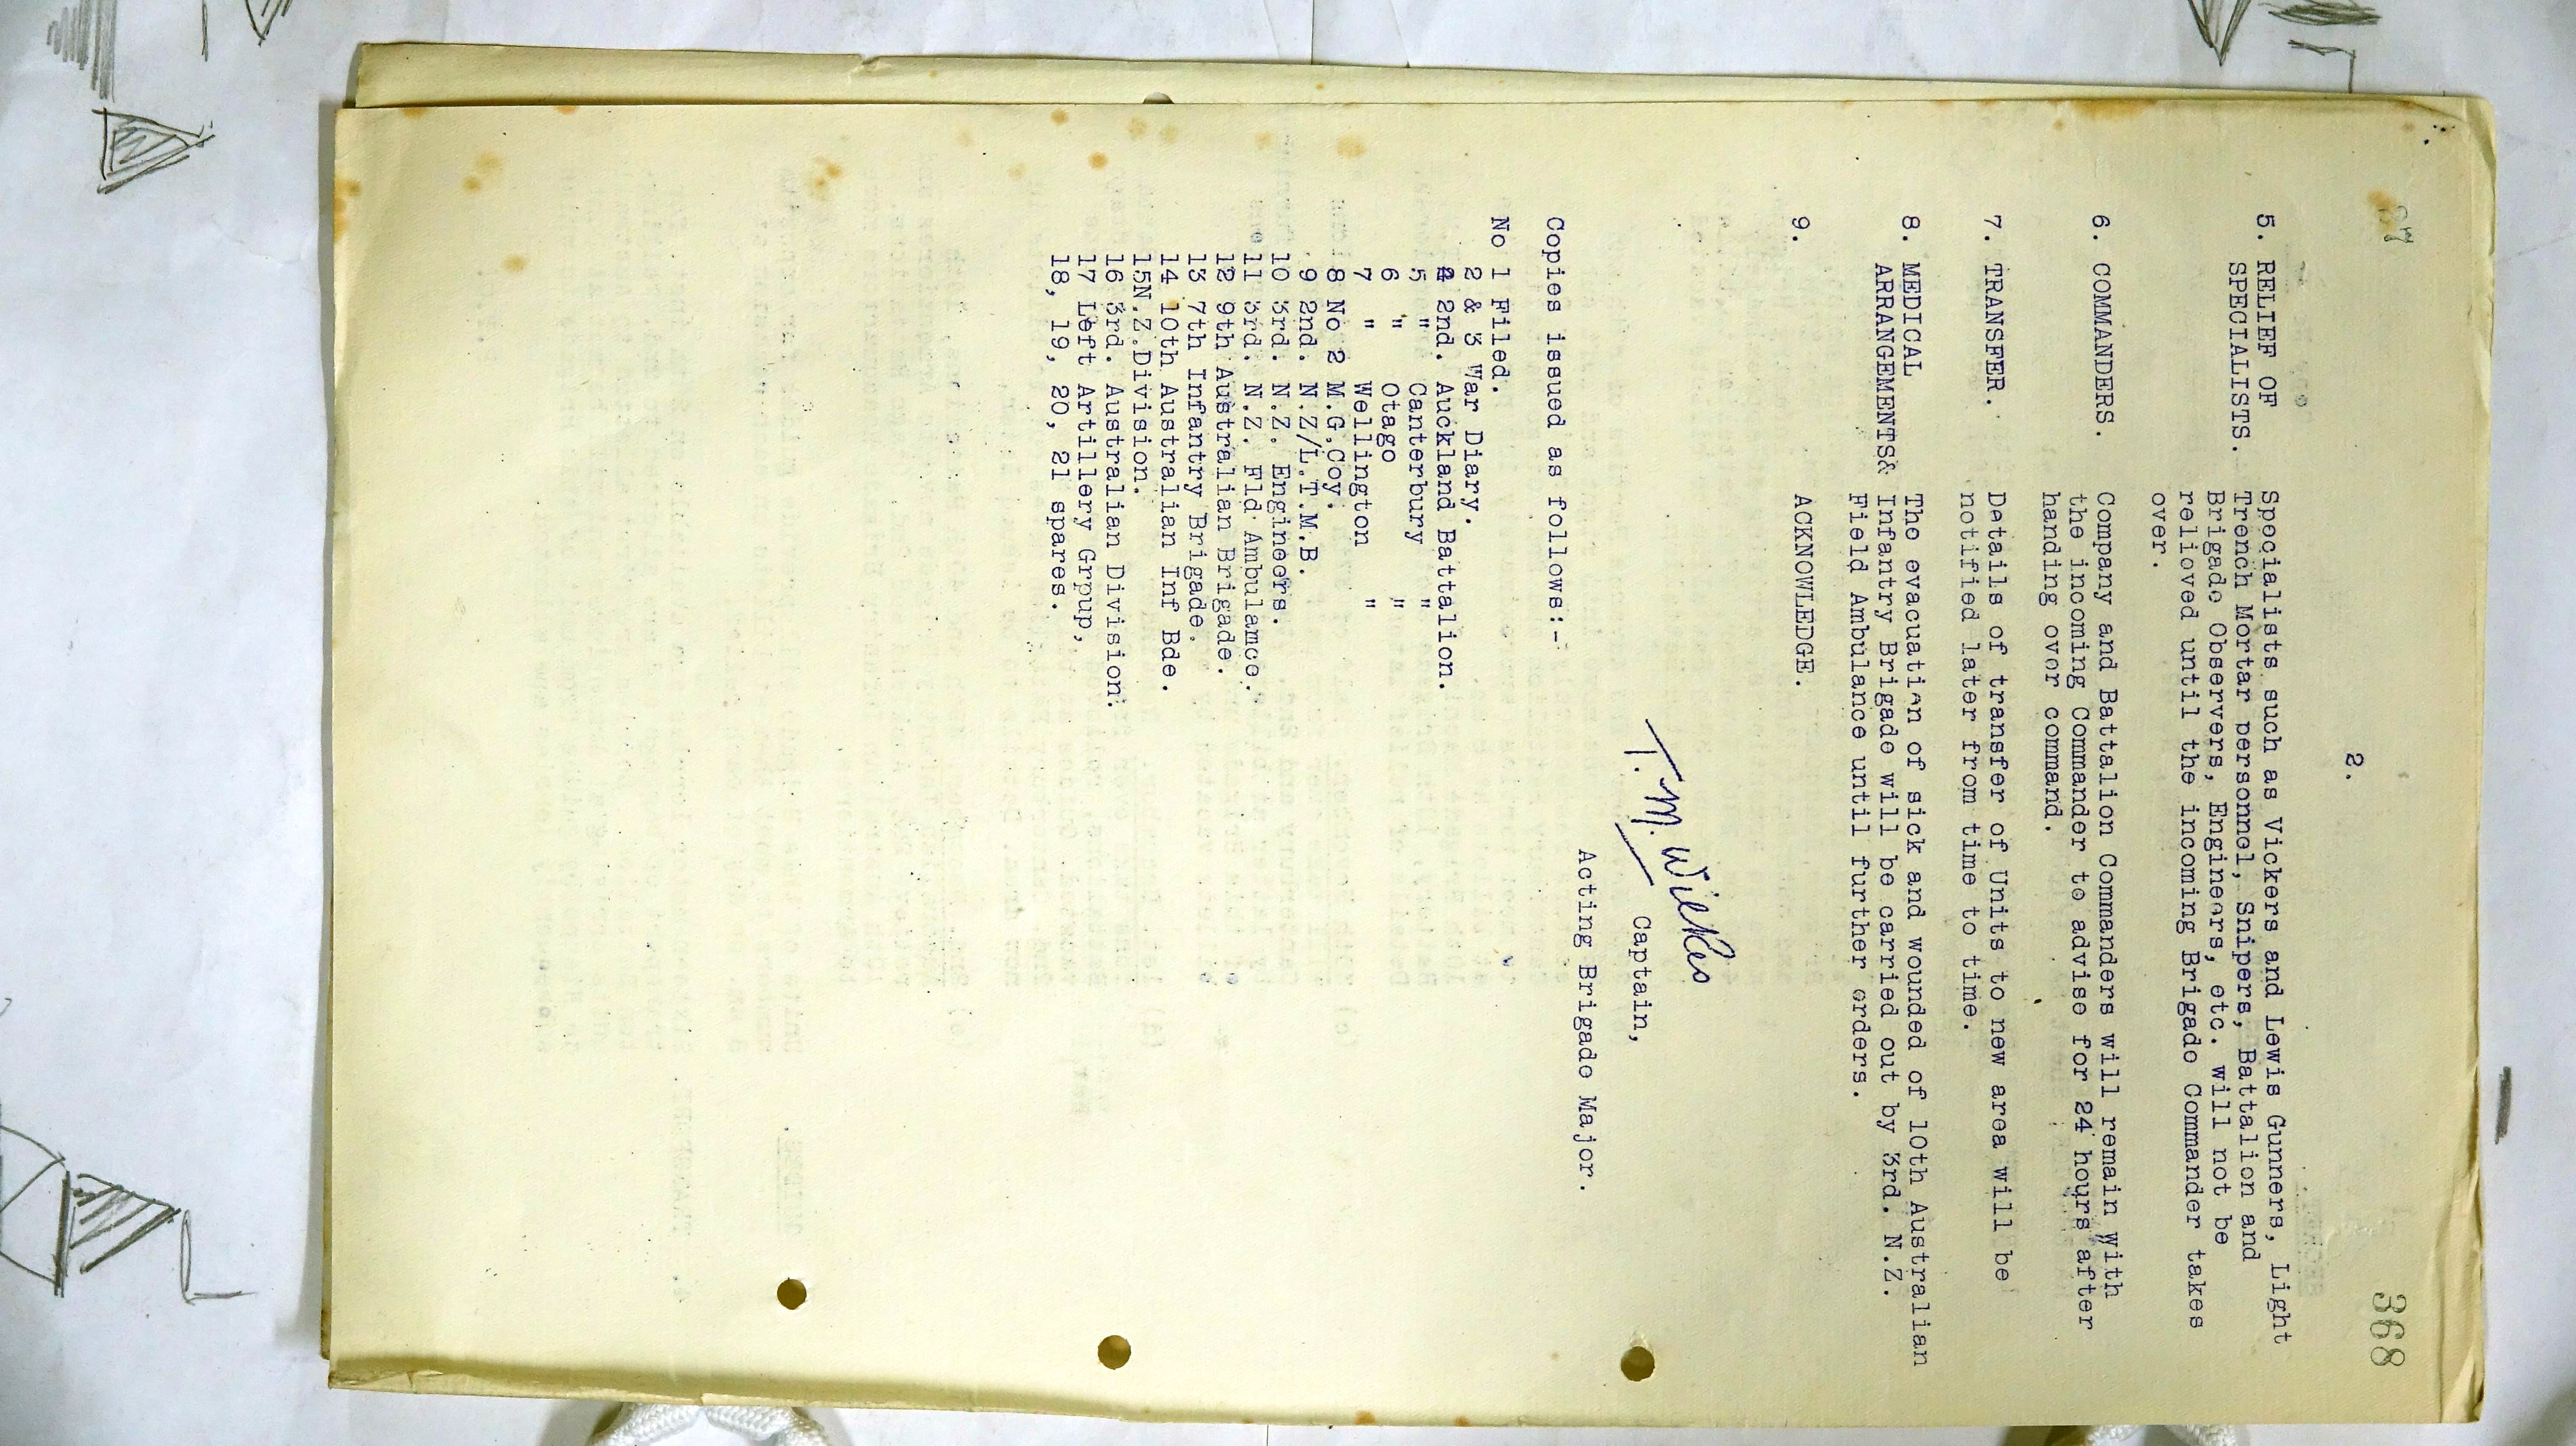 2.
368
67
5. RELIEF OF Specialists such as Vickers and Lewis Gunners, Light
SPECIALISTS. Trench Mortar personnel, Snipers, Battalion and
Brigade Observers, Engineers, etc. will not be
relieved until the incoming Brigade Commander takes
over.
6. COMMANDERS. Company and Battalion Commanders will remain with
the incoming Commander to advise for 24 hours after
handing over command.
7. TRANSFER. Details of transfer of Units to new area will be
notified later from time to time.
8. MEDICAL The evacuation of sick and wounded of 10th Australian
ARRANGEMENTS& Infantry Brigade will be carried out by 3rd. N.Z.
Field Ambulance until further orders.
9. ACKNOWLEDGE.
T. M. Wilkes
Captain,
Acting Brigade Major.
Copies issued as follows:-
No 1 Filed.
2 & 3 War Diary.
4 2nd. Auckland Battalion.
5 " Canterbury "
6 " Otago "
7 " Wellington "
8 No 2 M.G.Coy.
9 2nd. N.Z/L.T.M.B.
10 3rd. N.Z. Engineers.
11 3rd. N.Z. Fld Ambulamce.
12 9th Australian Brigade.
13 7th Infantry Brigade.
14 10th Australian Inf Bde.
15N.Z.Division.
16 3rd. Australian Division.
17 Left Artillery Grpup,
18, 19, 20, 21 spares.